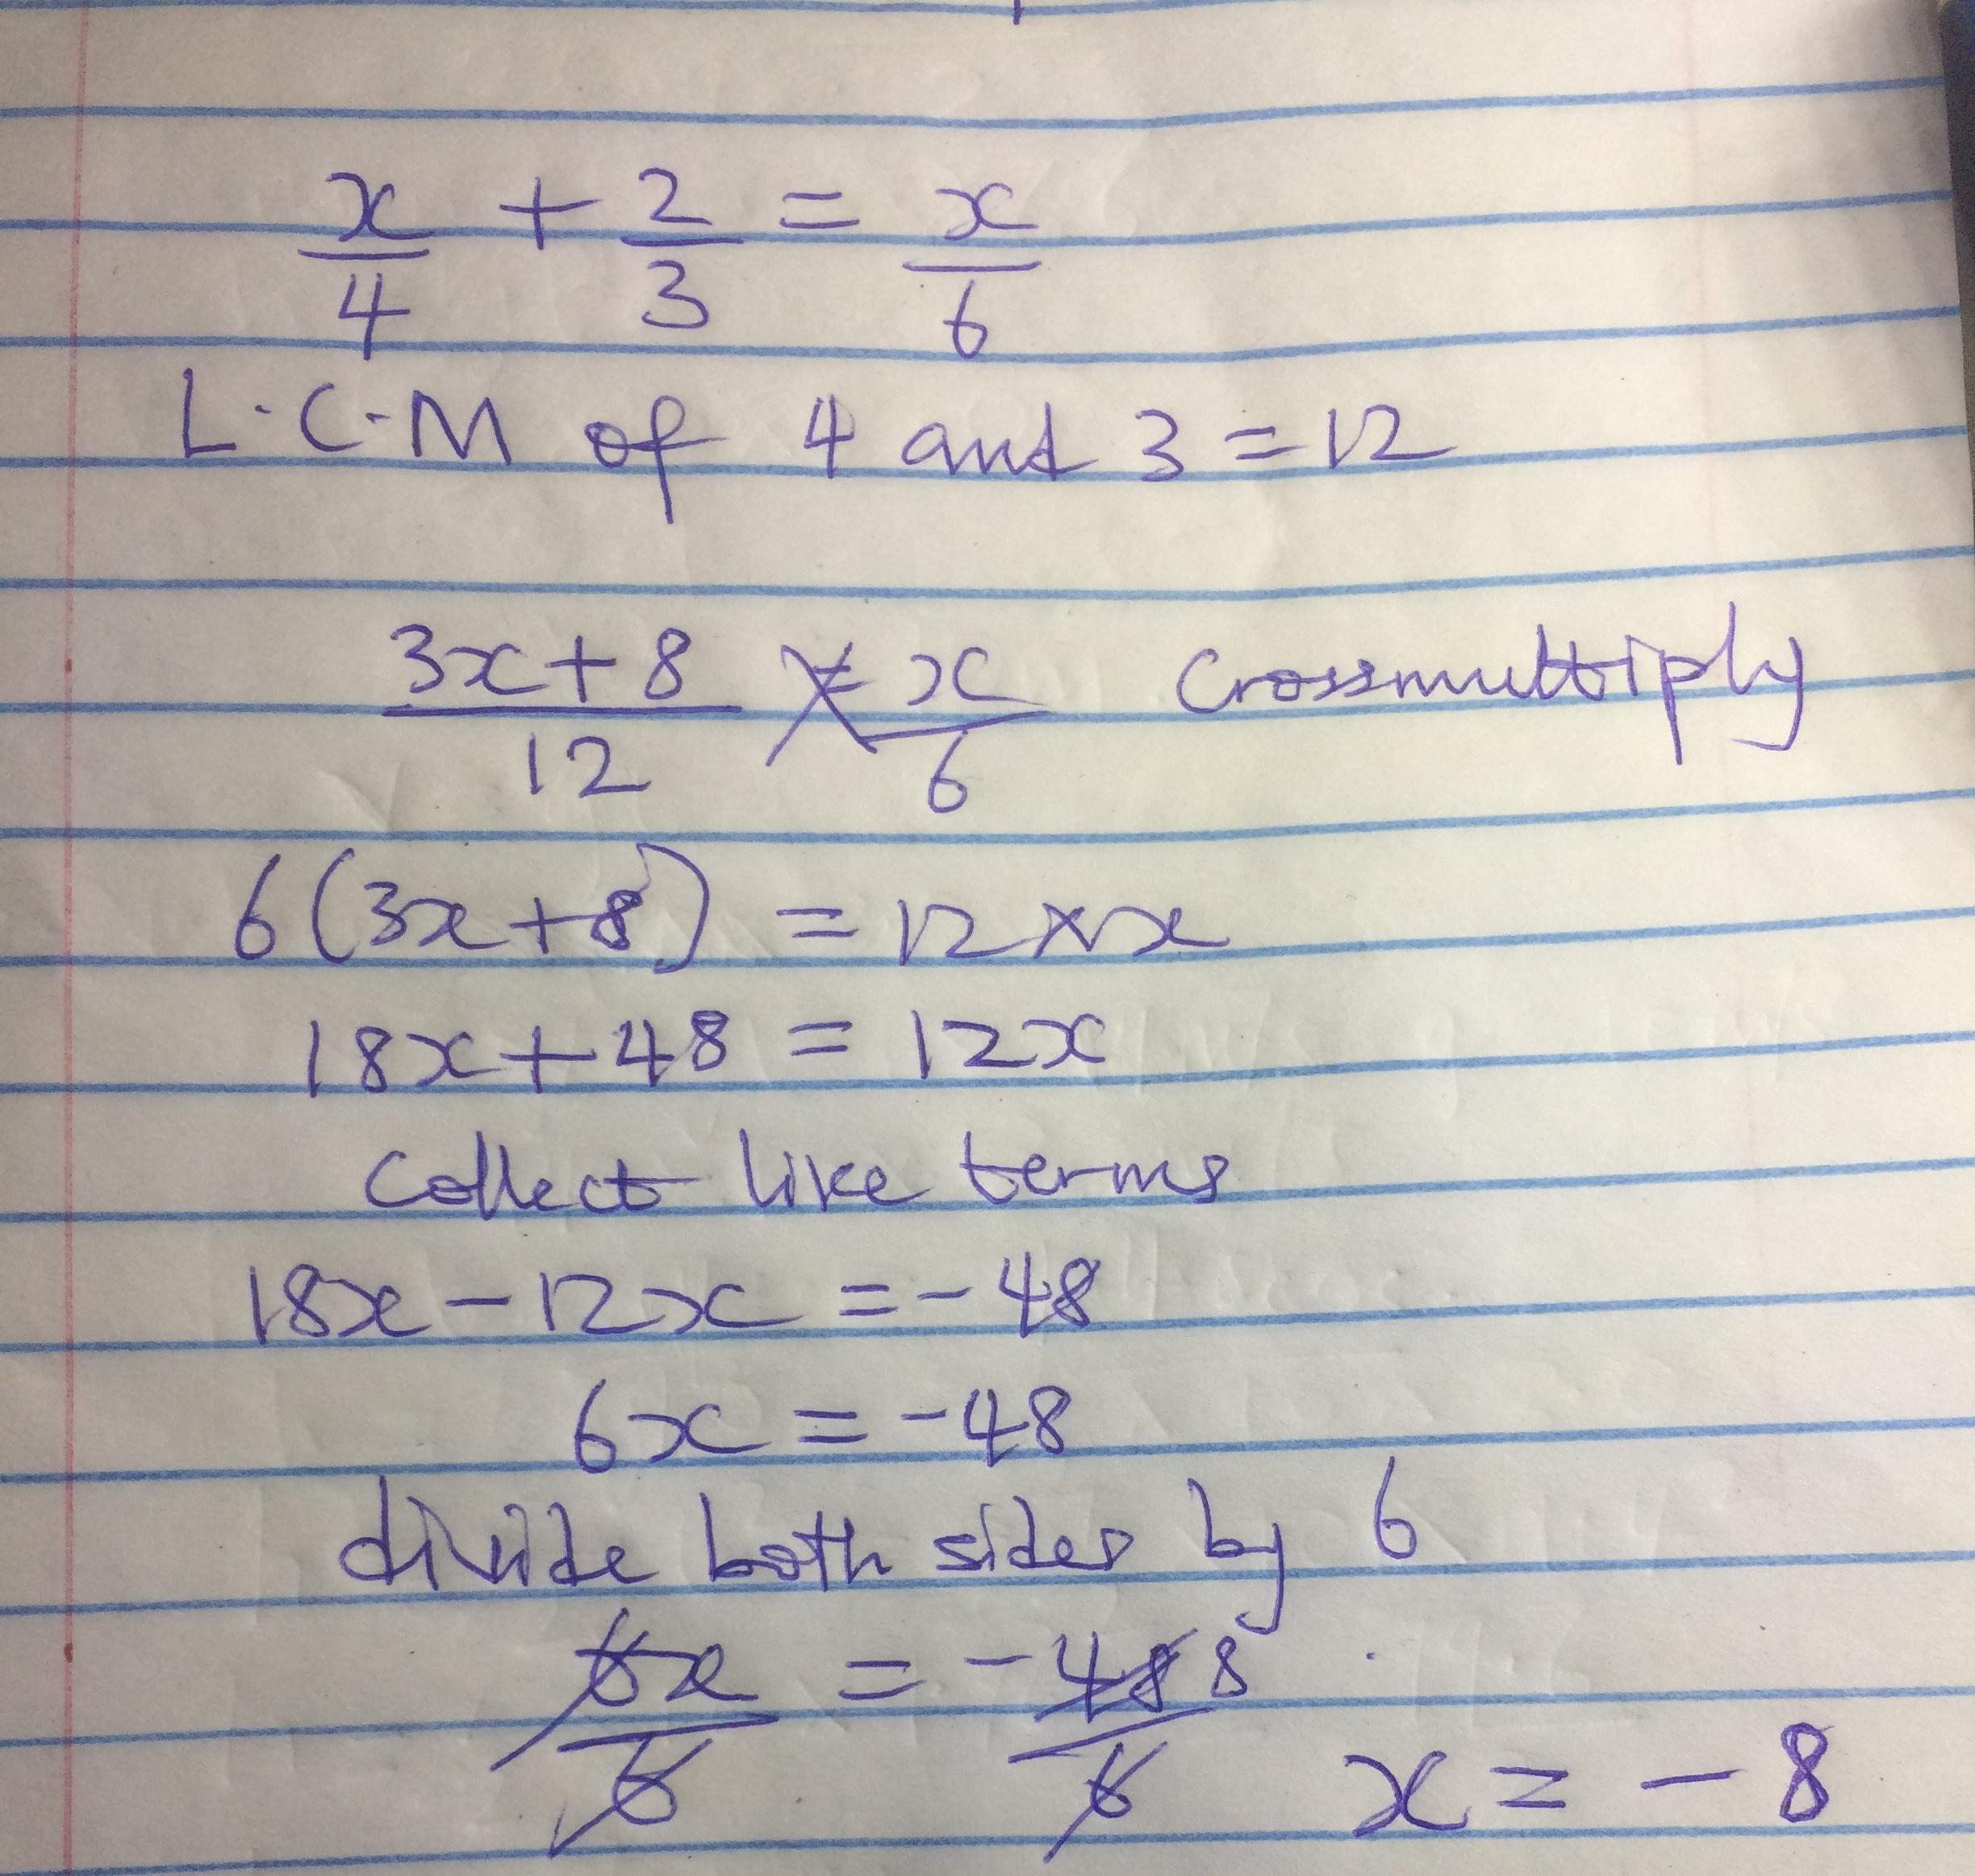 x/4 + 2/3 = x/6
L.C.M of 4 and 3 = 12
3x + 8/12 = x/6 Crossmultiply
6(3x+8) = 12 × x
18x + 48 = 12x
Collect like terms
18x - 12x = -48
6x = -48
divide both sides by 6
6x/6 = -48/6 8 x = -8